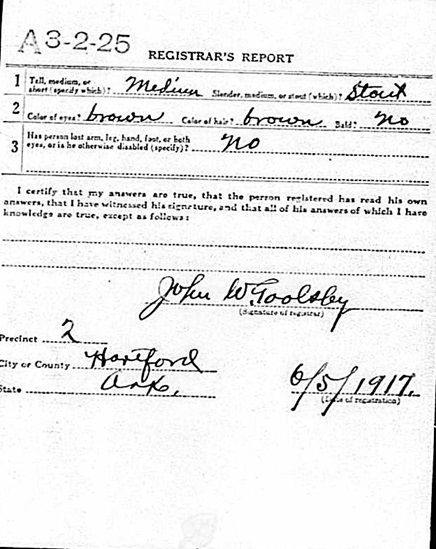 A 3-2-25
REGISTRAR'S REPORT
1 Tall, medium, or short (specify which)? Medium Slender, medium, or stout (which)? Stout
2 Color of eyes? brown Color of hair? brown Bald? No
3 Has person lost arm, leg, hand, foot, or both
eyes, or is he otherwise disabled (specify)? No
I certify that my answers are true, that the person registered has read his own
answers, that I have witnessed his signature, and that all of his answers of which I have
knowledge are true, except as follows:
John W Goolsby
(Signature of registrar)
Precinct 2
City or County Hartford
State Ark.
6/5/1917.
(Date of registration)